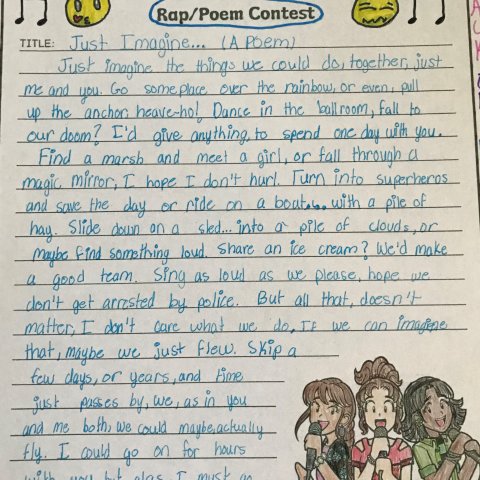 Rap/Poem Contest
TITLE: Just Imagine... (A Poem)
Just imagine the things we could do, together, just
me and you. Go someplace over the rainbow, or even, pull
up the anchor, heave-ho! Dance in the ballroom, fall to
our doom? I'd give anything, to spend one day with you.
Find a marsh and meet a girl, or fall through a
magic mirror, I hope I don't hurl. Turn into superheros
and save the day or ride on a boat... with a pile of
hay. Slide down on a sled... into a pile of clouds, or
maybe find something loud. Share an ice cream? We'd make
a good team. Sing as loud as we please, hope we
don't get arrested by police. But all that, doesn't
matter, I don't care what we do, If we can imagine
that, maybe we just flew. Skip a
few days, or years, and time
just passes by, we, as in you
and me both, we could maybe, actually
fly. I could go on for hours
with you but alas I must go